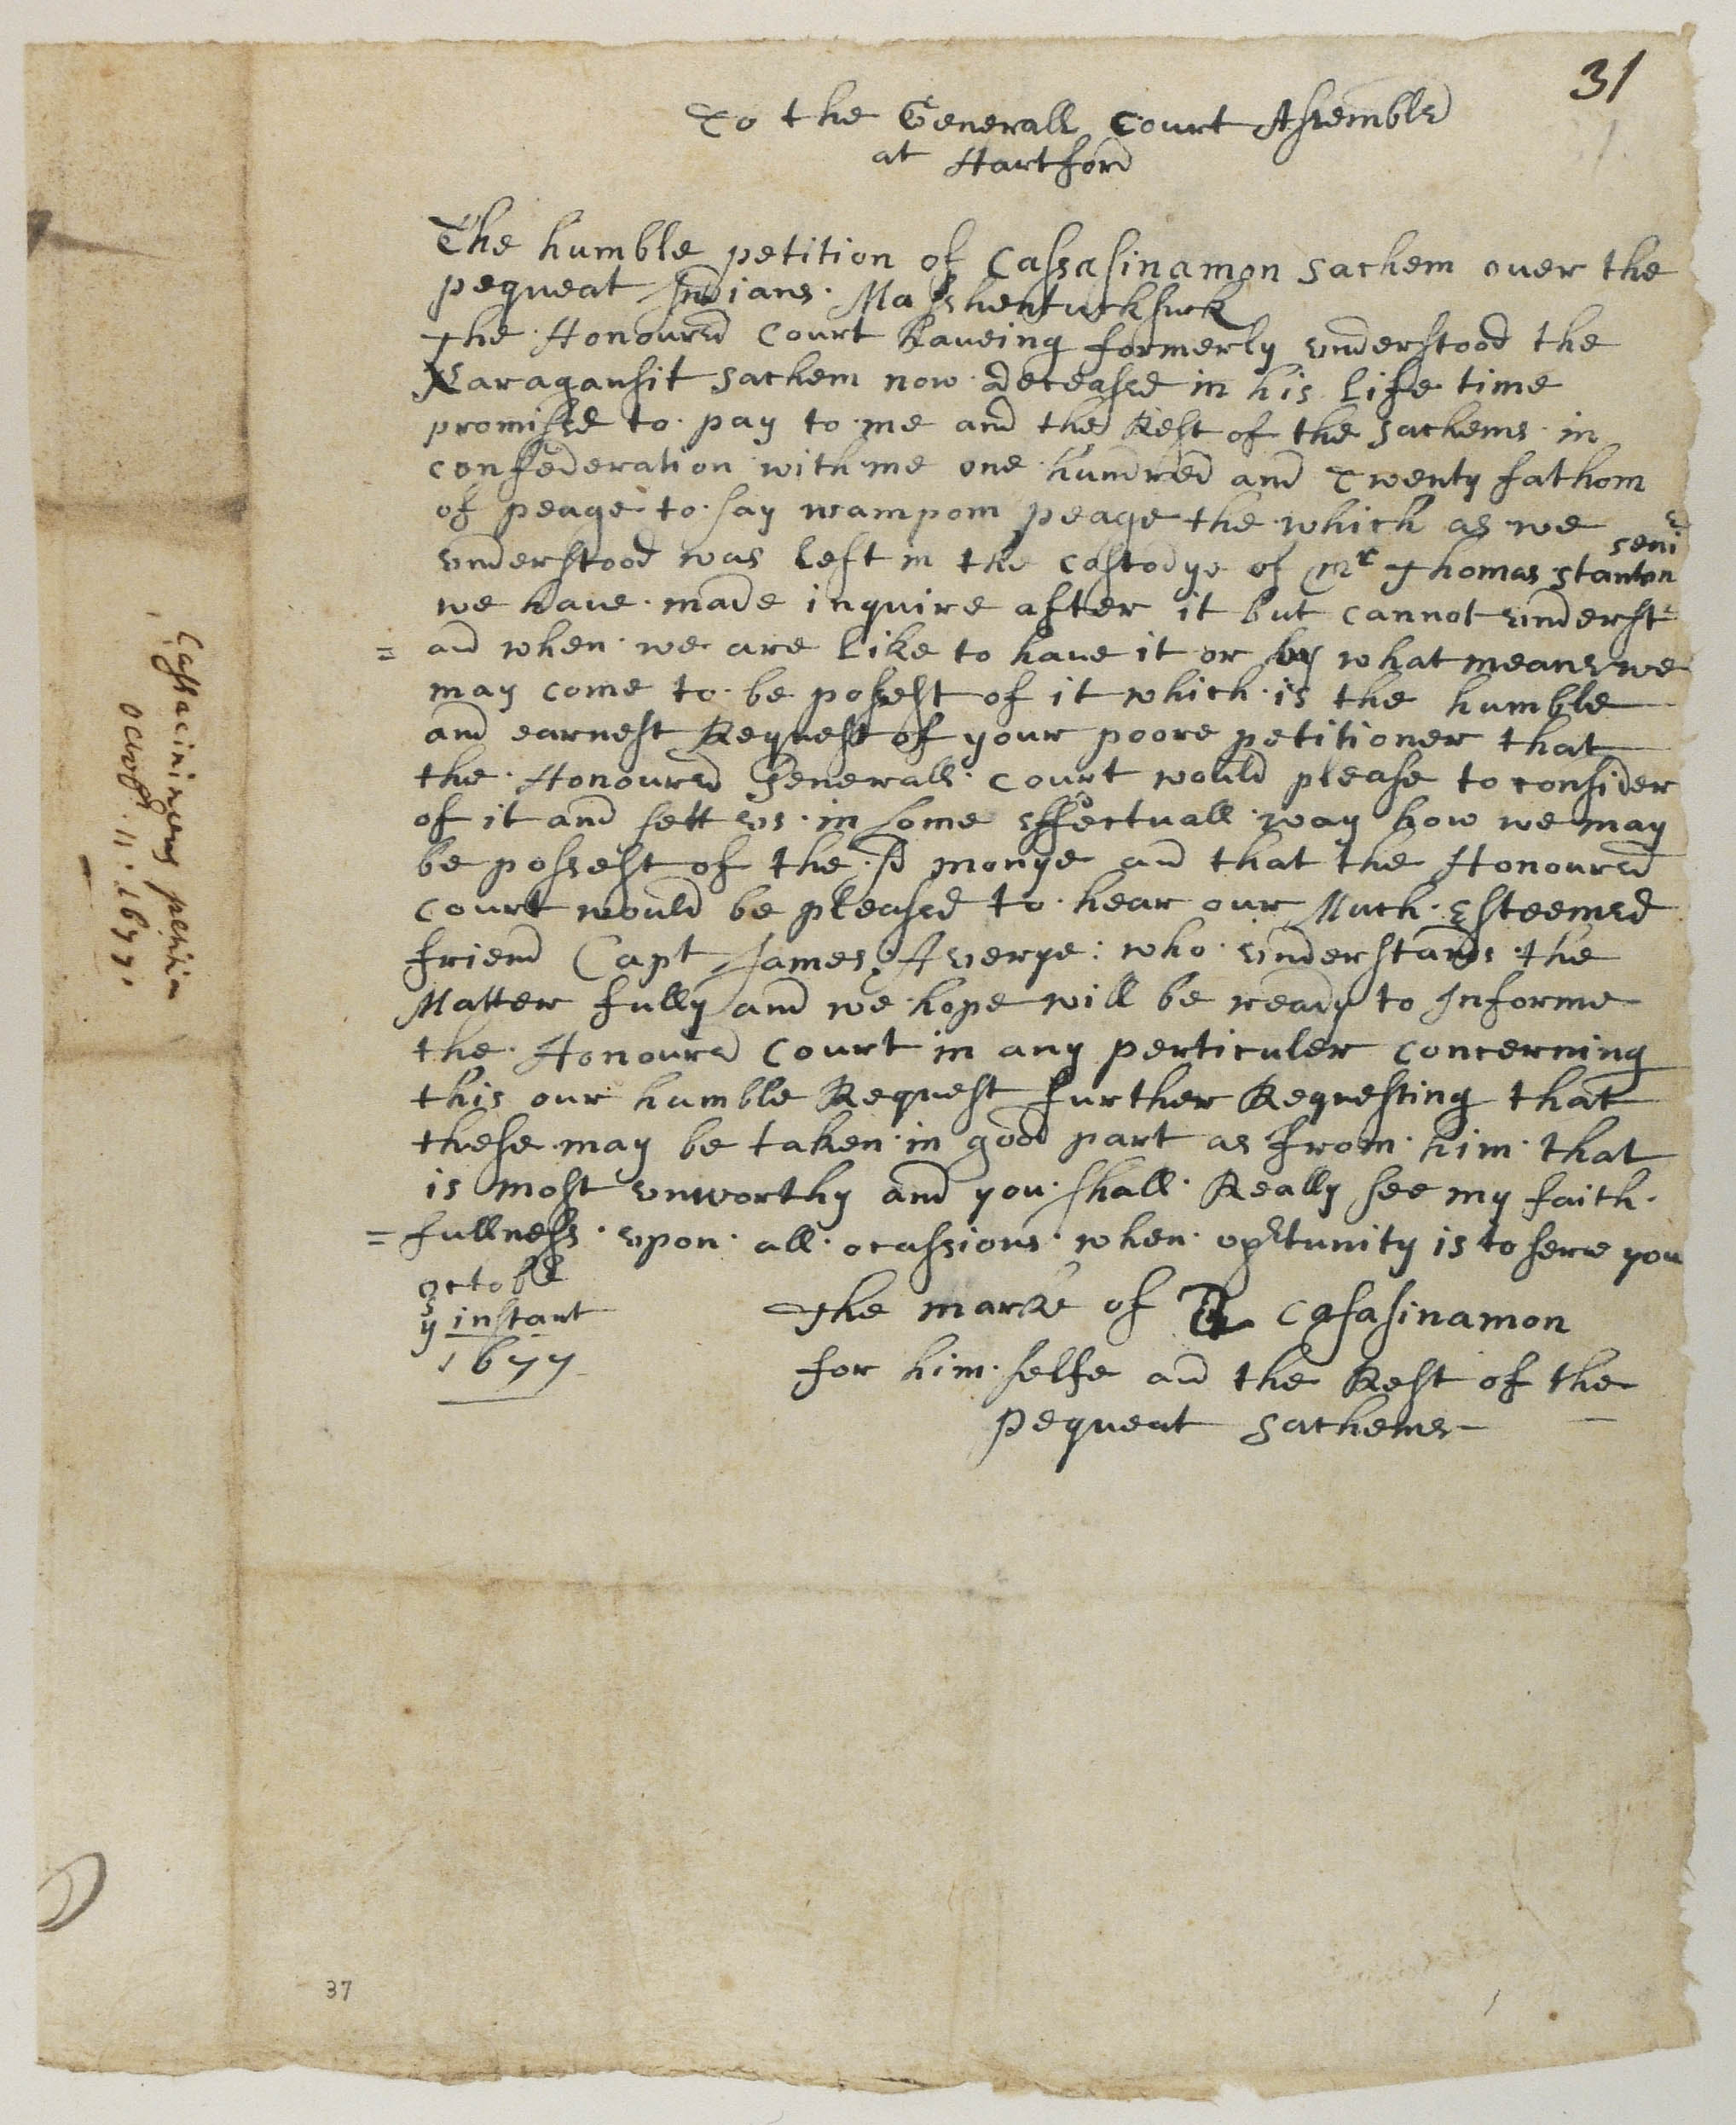 31
To the Generall Court Assembled
at Hartford
The humble petition of Cassasinamon sachem over the
pequeat Indians. Masshentucksuck
The Honoured Court haveing formerly vnderstood the
Naragansit sachem now deceased in his life time
promised to pay to me and the Rest of the sachems in
confederation with me one hundred and Twenty fathom
of peage to say wampom peage the which as we
vnderstood was left in the Costodye of Mr Thomas Stanton senir
we have made inquire after it but cannot vnderst
= and when we are like to have it or by what meanes we
may come to be possest of it which is the humble
and earnest Request of your poore petitioner that
the Honoured Generall Court would please to consider
of it and sett vs in some effectuall way how we may
be possest of the sd monye and that the Honoured
Court would be pleased to hear our Much Esteemed
friend Capt James Averye: who vnderstands the
Matter fully and we hope will be ready to Informe
the Honoured Court in any perticuler concerning
this our humble Request further Requesting that
these may be taken in good part as from him that
is most vnworthy and you shall Really see my faith
= fullness vpon all ocassions when opertunity is to serve you
October
9 instant
1677
The marke of Casasinamon
for him selfe and the Rest of the
pequeat sachems
Cassacinimons petition
Octobr. 11: 1677.
37